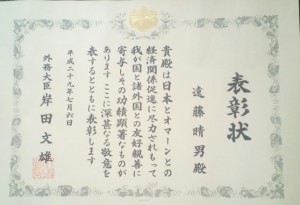 表彰状
遠藤晴男殿
貴殿は日本とオマーンとの
経済関係促進に尽力されもって
我が国と諸外国との友好親善に
寄与しその功績顕著なものが
あります ここに深甚なる敬意を
表するとともに表彰します
平成二十九年七月六日
外務大臣 岸田文雄